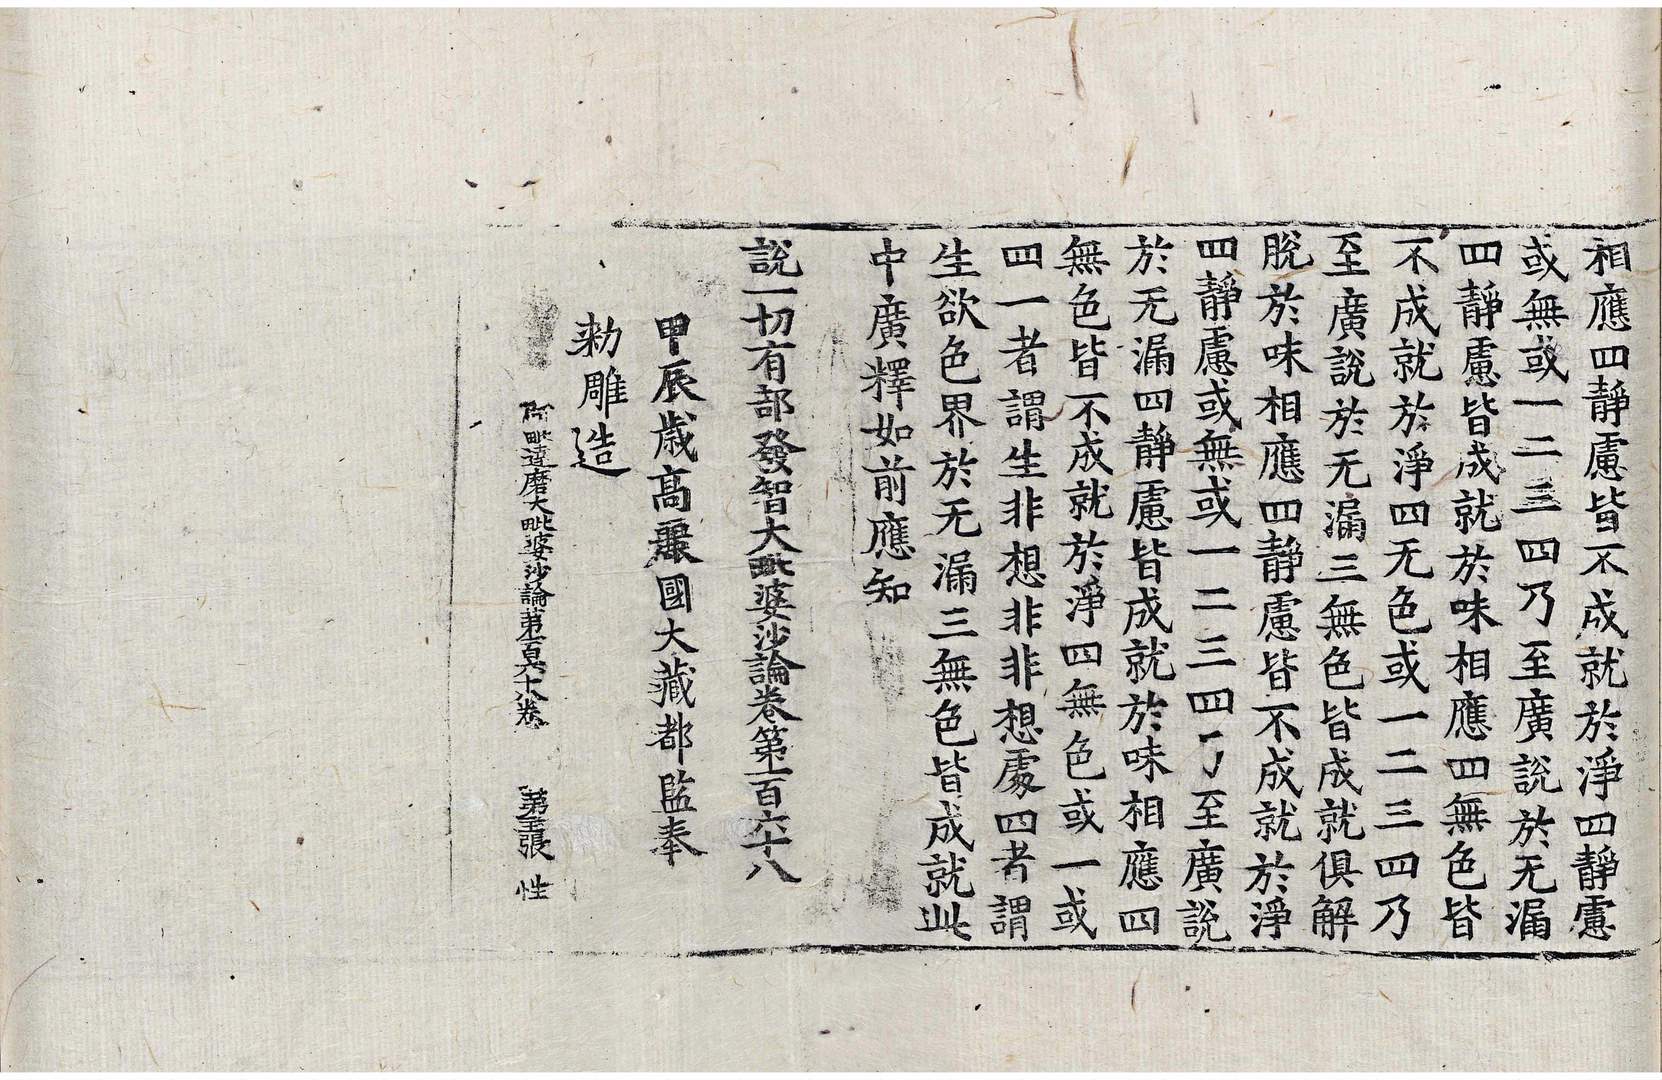 相應四靜慮皆不成就於淨四靜慮
或無或一二三四乃至廣說於无漏
四靜慮皆成就於味相應四無色皆
不成就於淨四无色或一二三四乃
至廣說於无漏三無色皆成就俱解
脫於味相應四靜慮皆不成就於淨
四靜慮或無或一二三四乃至廣說
於无漏四靜慮皆成就於味相應四
無色皆不成就於淨四無色或一或
四一者謂生非想非非想處四者謂
生欲色界於无漏三無色皆成就此
中廣釋如前應知
說一切有部發智大毗婆沙論卷第一百六十八
甲辰歲高麗國大藏都監奉
勑雕造
阿毗達磨大毗婆沙論第一百六十八卷 第張 性